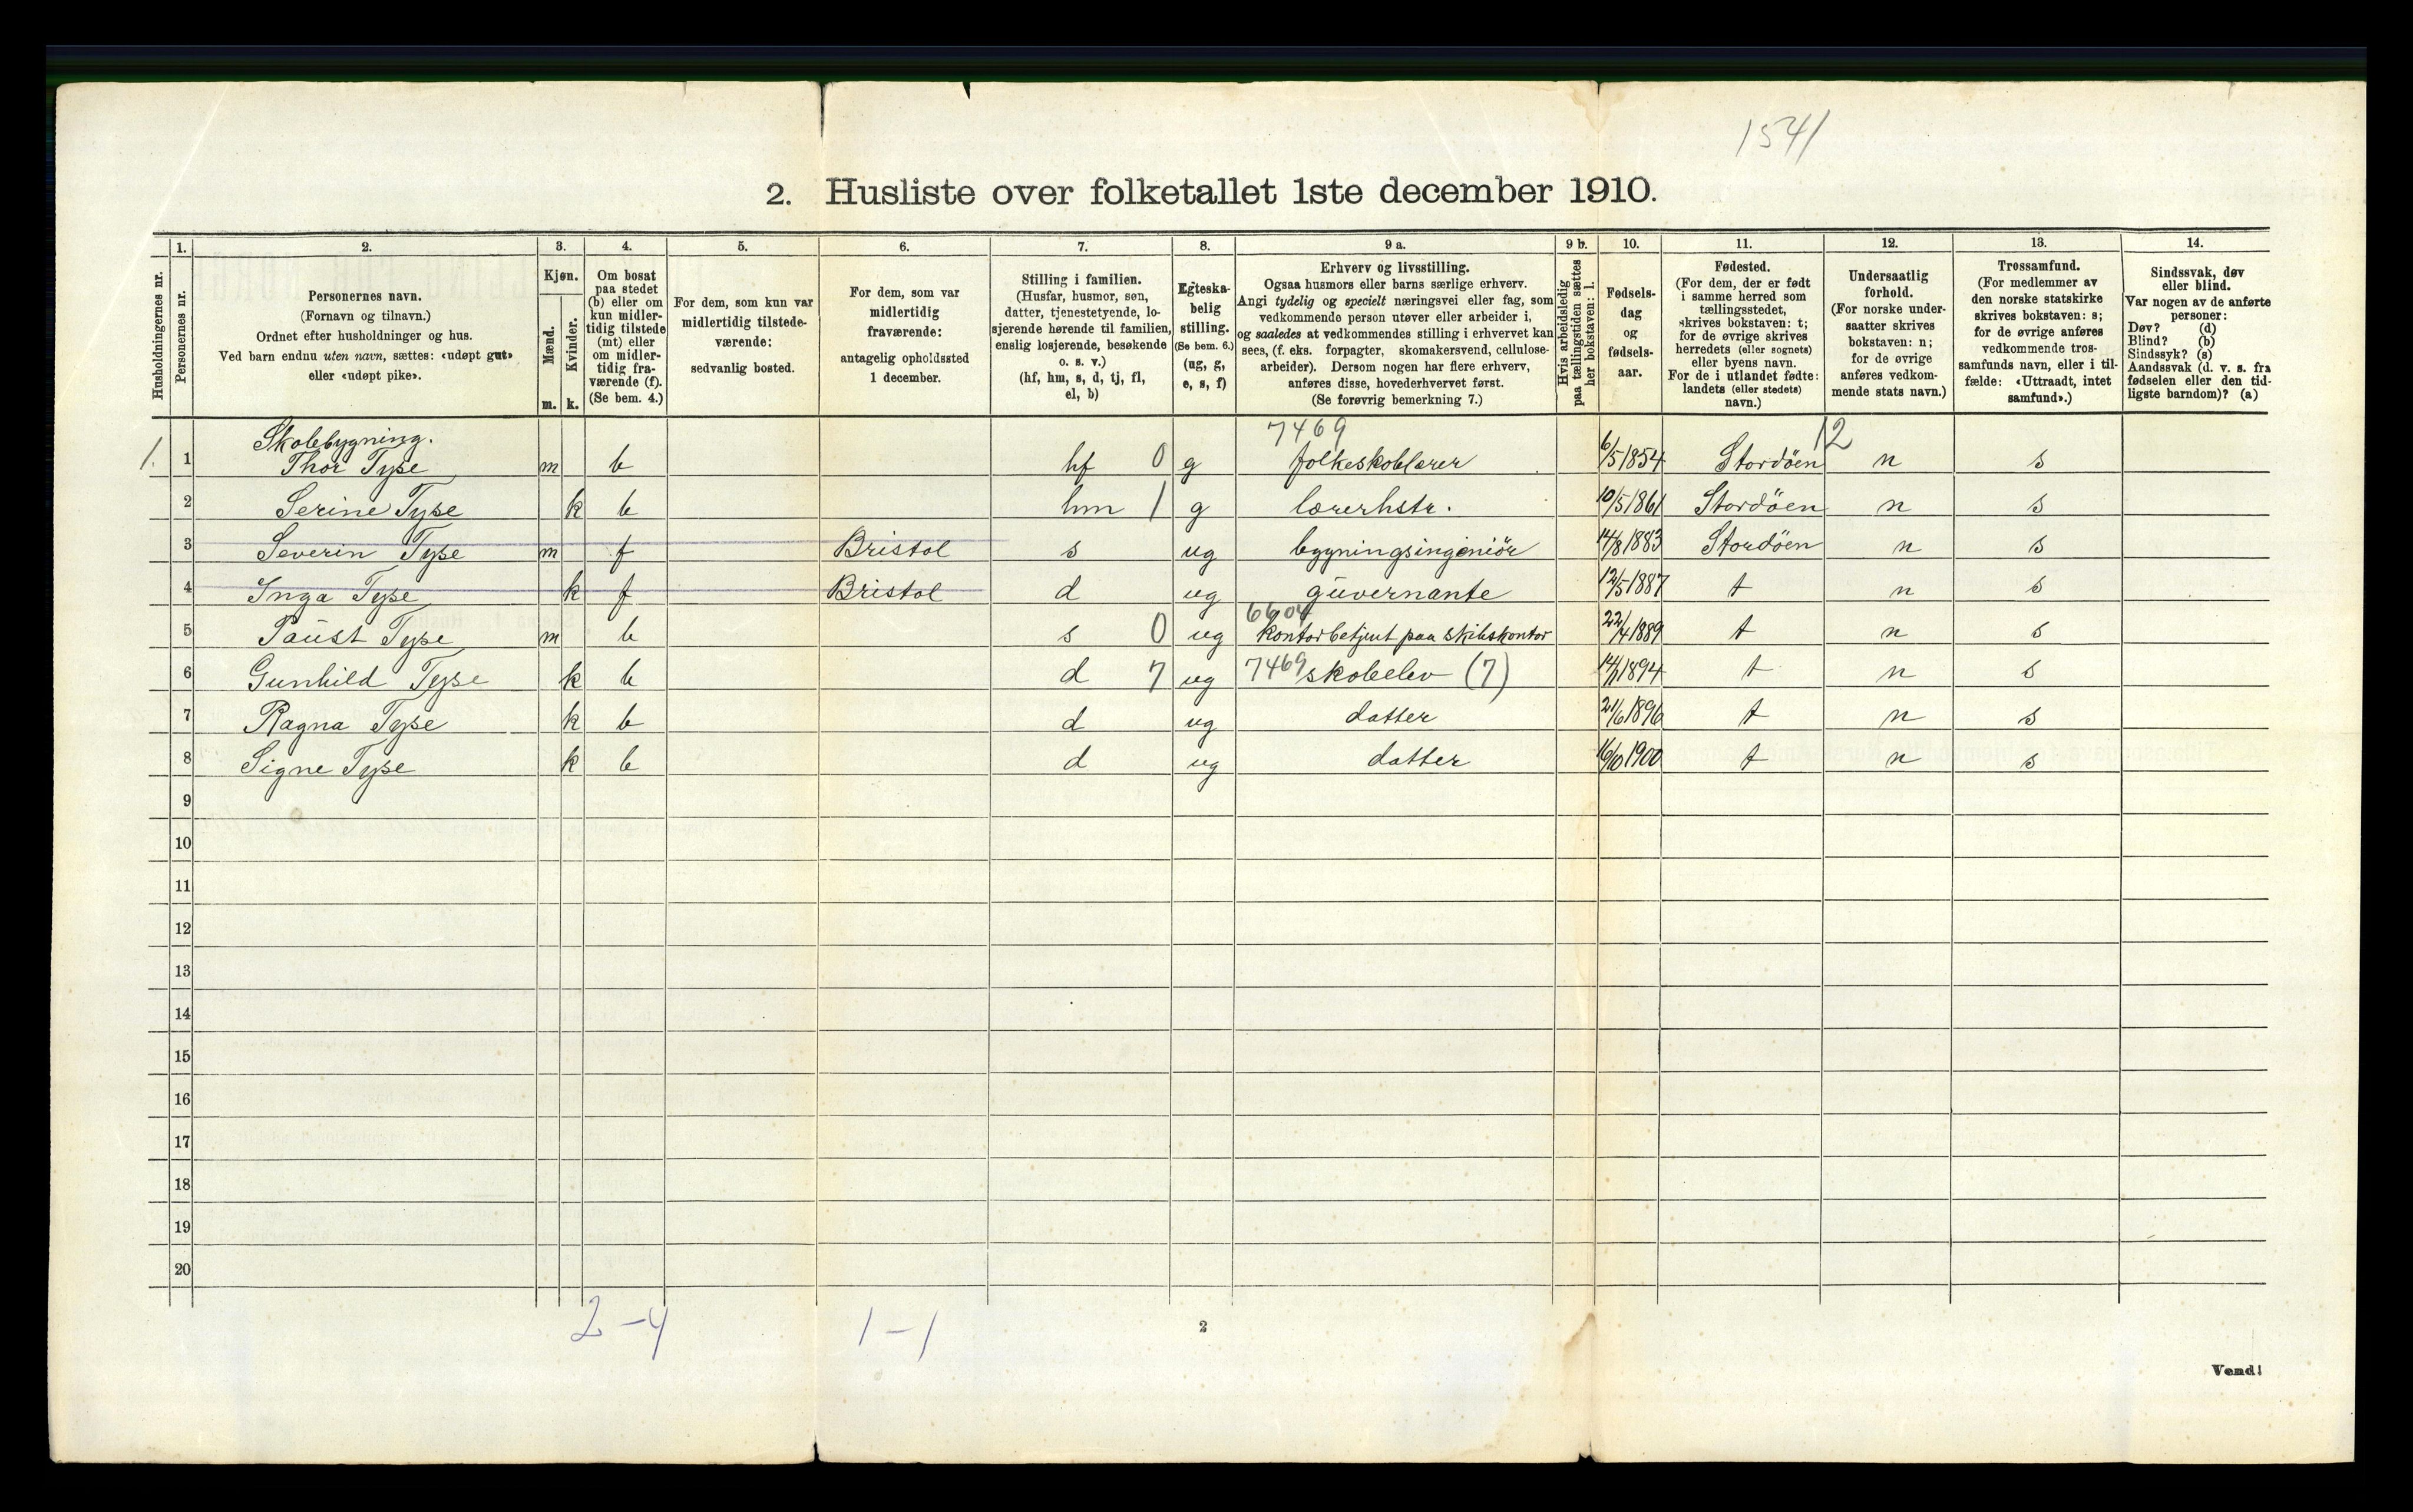 1541
2. Husliste over folketallet 1ste december 1910.
Husholdningernes nr.
1.
Personernes nr.
2.
Personernes navn.
(Fornavn og tilnavn.)
Ordnet efter husholdninger og hus.
Ved barn endnu uten navn, sættes: «udøpt gut»
eller «udøpt pike».
3.
Kjøn.
Mænd.
m.
Kvinder.
k.
4.
Om bosat
paa stedet
(b) eller om
kun midler-
tidig tilstede
(mt) eller
om midler-
tidig fra-
værende (f).
(Se bem. 4.)
5.
For dem, som kun var
midlertidig tilstede-
værende:
sedvanlig bosted.
6.
For dem, som var
midlertidig
fraværende:
antagelig opholdssted
1 december.
7.
Stilling i familien.
(Husfar, husmor, søn,
datter, tjenestetyende, lo-
sjerende hørende til familien,
enslig losjerende, besøkende
o. s. v.)
(hf, hm, s, d, tj, fl,
el, b)
8.
Egteska-
belig
stilling.
(Se bem. 6.)
(ug, g,
e, s, f)
9 a.
Erhverv og livsstilling.
Ogsaa husmors eller barns særlige erhverv.
Angi tydelig og specielt næringsvei eller fag, som
vedkommende person utøver eller arbeider i,
og saaledes at vedkommendes stilling i erhvervet kan
sees, (f. eks. forpagter, skomakersvend, cellulose-
arbeider). Dersom nogen har flere erhverv,
anføres disse, hovederhvervet først.
(Se forøvrig bemerkning 7.)
9 b.
Hvis arbeidsledig
paa tællingstiden sættes
her bokstaven: l.
10.
Fødsels-
dag
og
fødsels-
aar.
11.
Fødested.
(For dem, der er født
i samme herred som
tællingsstedet,
skrives bokstaven: t;
for de øvrige skrives
herredets (eller sognets)
eller byens navn.
For de i utlandet fødte:
landets (eller stedets)
navn.)
12.
Undersaatlig
forhold.
(For norske under-
saatter skrives
bokstaven: n;
for de øvrige
anføres vedkom-
mende stats navn.)
13.
Trossamfund.
(For medlemmer av
den norske statskirke
skrives bokstaven: s;
for de øvrige anføres
vedkommende tros-
samfunds navn, eller i til-
fælde: «Uttraadt, intet
samfund».)
14.
Sindssvak, døv
eller blind.
Var nogen av de anførte
personer:
Døv? (d)
Blind? (b)
Sindssyk? (s)
Aandssvak (d. v. s. fra
fødselen eller den tid-
ligste barndom)? (a)
Skolebygning. 7469 12
1. 1 Thor Tyse m b hf 0 g folkeskolelærer 6/5 1854 Stordöen n s
2 Serine Tyse k b hm 1 g lærerhstr. 10/5 1861 Stordöen n s
3 Severin Tyse m f Bristol s ug bygningsingeniör 14/8 1883 Stordöen n s
4 Inga Tyse k f Bristol d ug guvernante 12/5 1887 t n s
6604
5 Paust Tyse m b s 0 ug kontorbetjent paa skibskontor 22/4 1889 t n s
6 Gunhild Tyse k b d 7 ug 7469 skoleelev (7) 14/1 1894 t n s
7 Ragna Tyse k b d ug datter 21/6 1896 t n s
8 Signe Tyse k b d ug datter 16/10 1900 t n s
9
10
11
12
13
14
15
16
17
18
19
20
2-4 1-1
2
Vend!